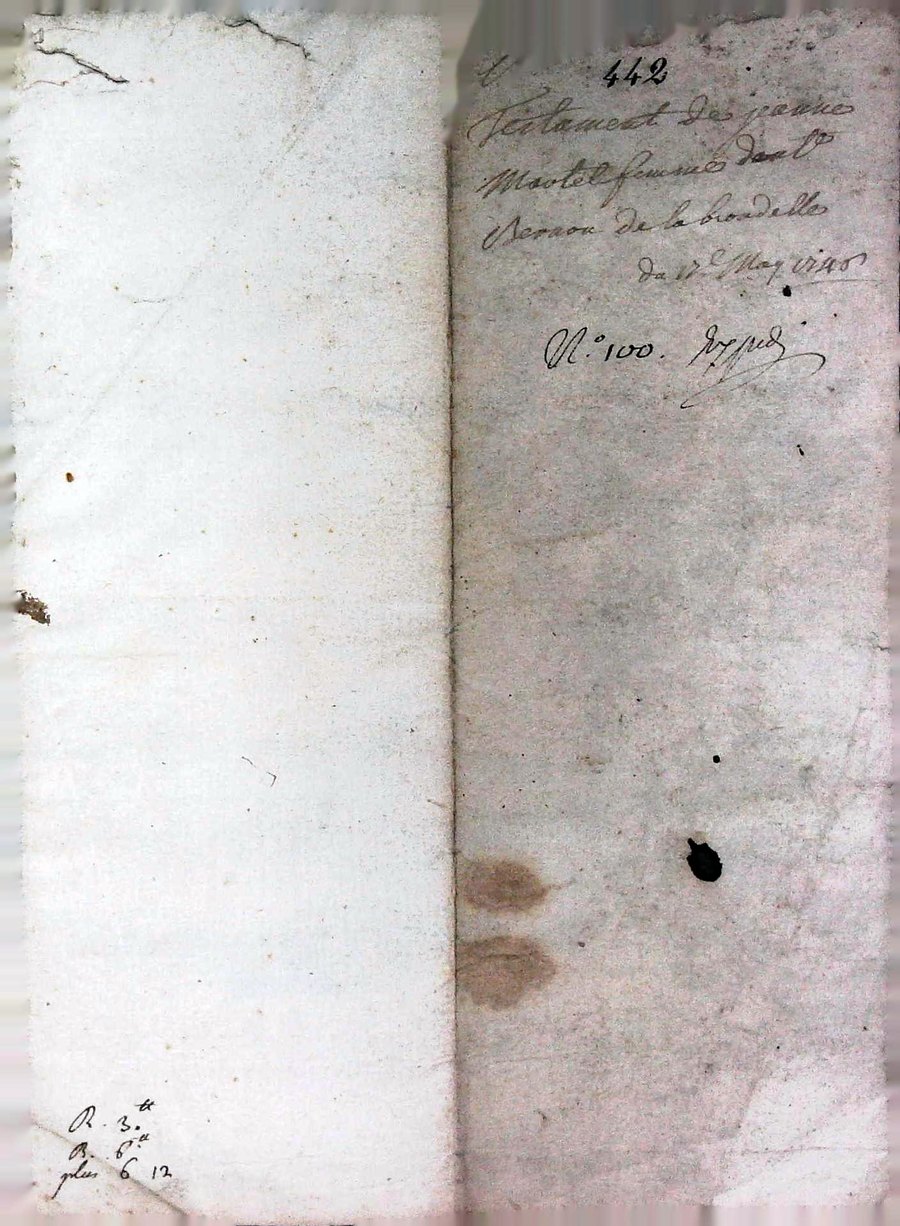 442
Testament de jeanne
Martel femme dant.e
Bernon de la brondelle
du 17.e May 1740
N.o 100.
R. 3.tt
B. 6.tt
plus 6 12